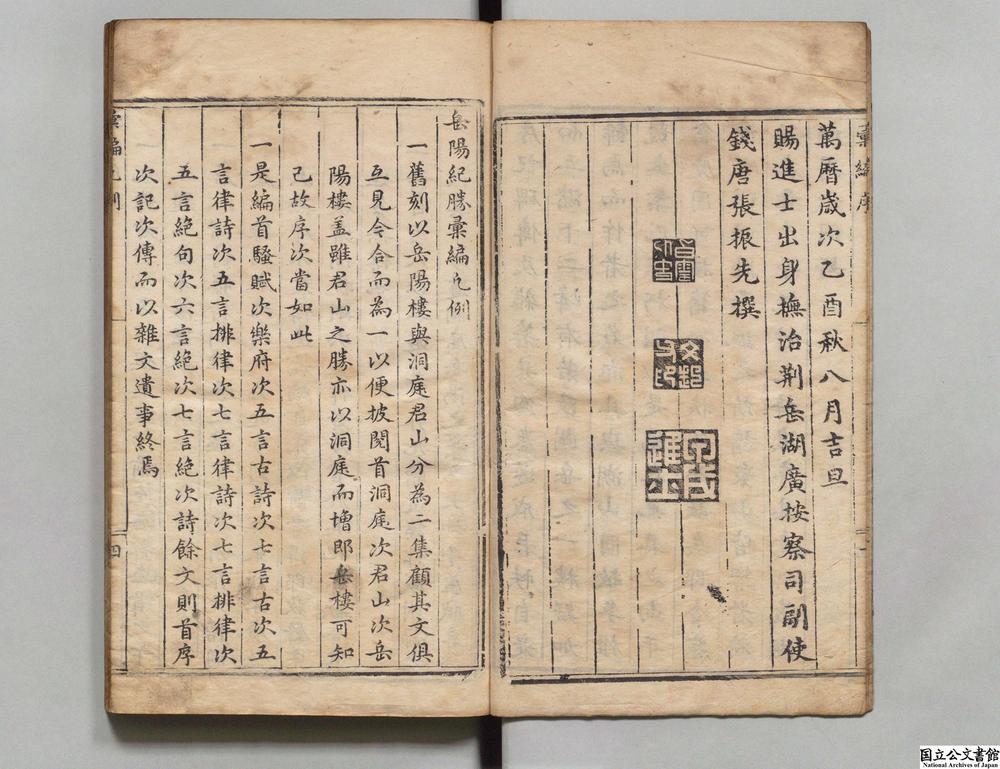 彙編序
萬曆歲次乙酉秋八月吉旦
賜進士出身撫治荆岳湖廣按察司副使
錢唐張振先撰
岳陽紀勝彙編凡例
一舊刻以岳陽樓與洞庭君山分為二集顧其文俱
互見今合而為一以便披閱首洞庭次君山次岳
陽樓盖雖君山之勝亦以洞庭而增郎岳樓可知
已故序次當如此
一是編首騷賦次樂府次五言古詩次七言古次五
言律詩次五言排律次七言律詩次七言排律次
五言絕句次六言絕次七言絕次詩餘文則首序
次記次傳而以雜文遺事終焉
彙編凡例
四
国立公文書館
National Archives of Japan